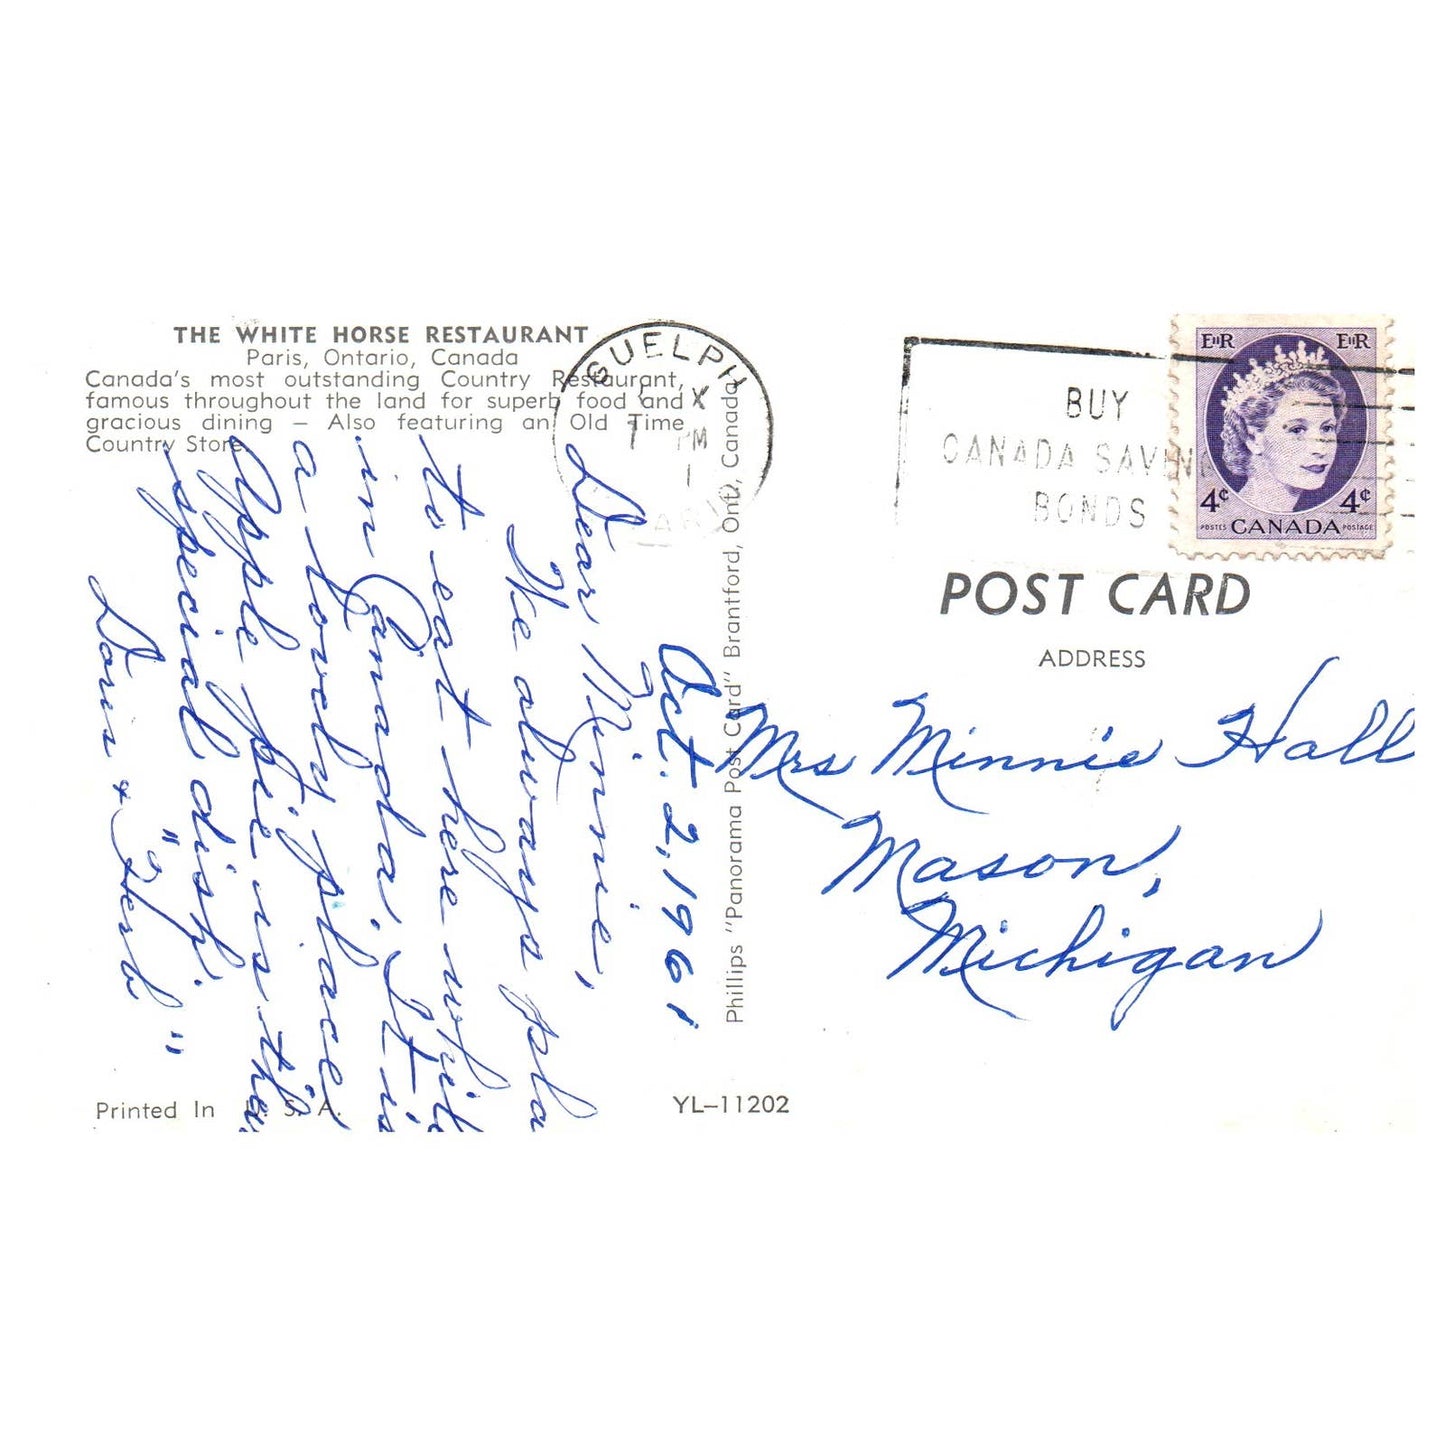 THE WHITE HORSE RESTAURANT
Paris, Ontario, Canada
Canada's most outstanding Country Restaurant,
famous throughout the land for superb food and
gracious dining – Also featuring an Old Time
Country Store.
Oct. 2, 1961
Dear Minnie,
We always pla
to eat here whil
in Canada. It is
a lovely place
Apple pie is the
special dish.
Doris + "Herb"
Printed In U. S. A.
YL–11202
Phillips "Panorama Post Card" Brantford, Ont., Canada
GUELPH
X
PM
BUY
CANADA SAVIN
BONDS
EIIR EIIR
4¢ 4¢
POSTES CANADA POSTAGE
POST CARD
ADDRESS
Mrs Minnie Hall
Mason,
Michigan